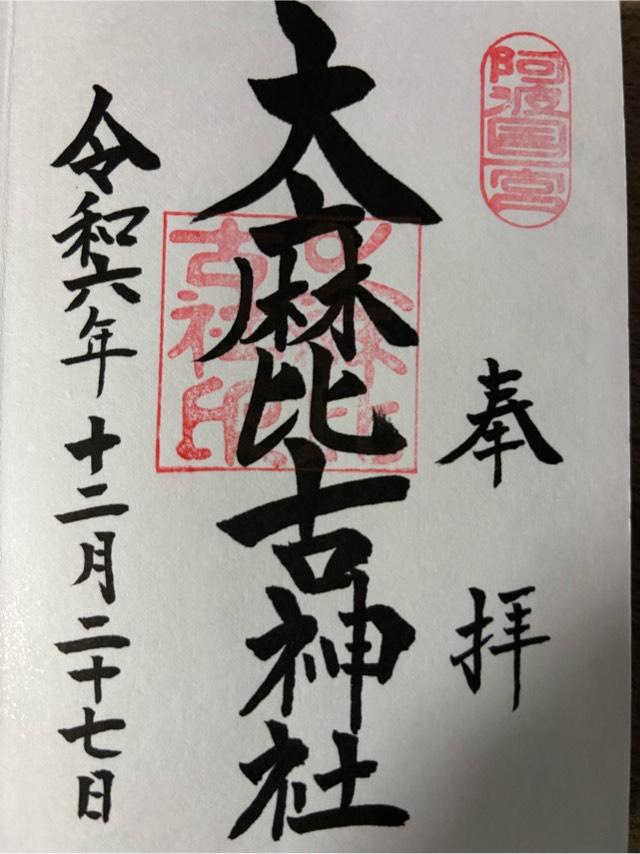 阿波国一宮
奉拝
大麻比古神社
古社印
令和六年十二月二十七日